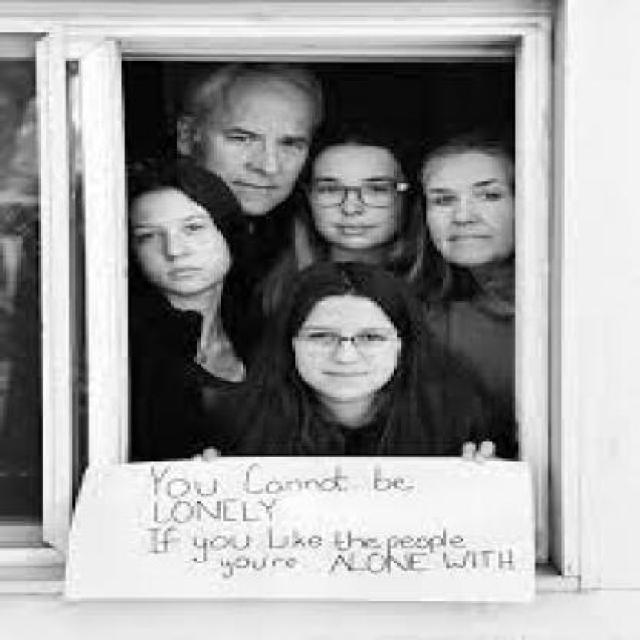 You Cannot be
LONELY
If you Like the people
you're ALONE WITH